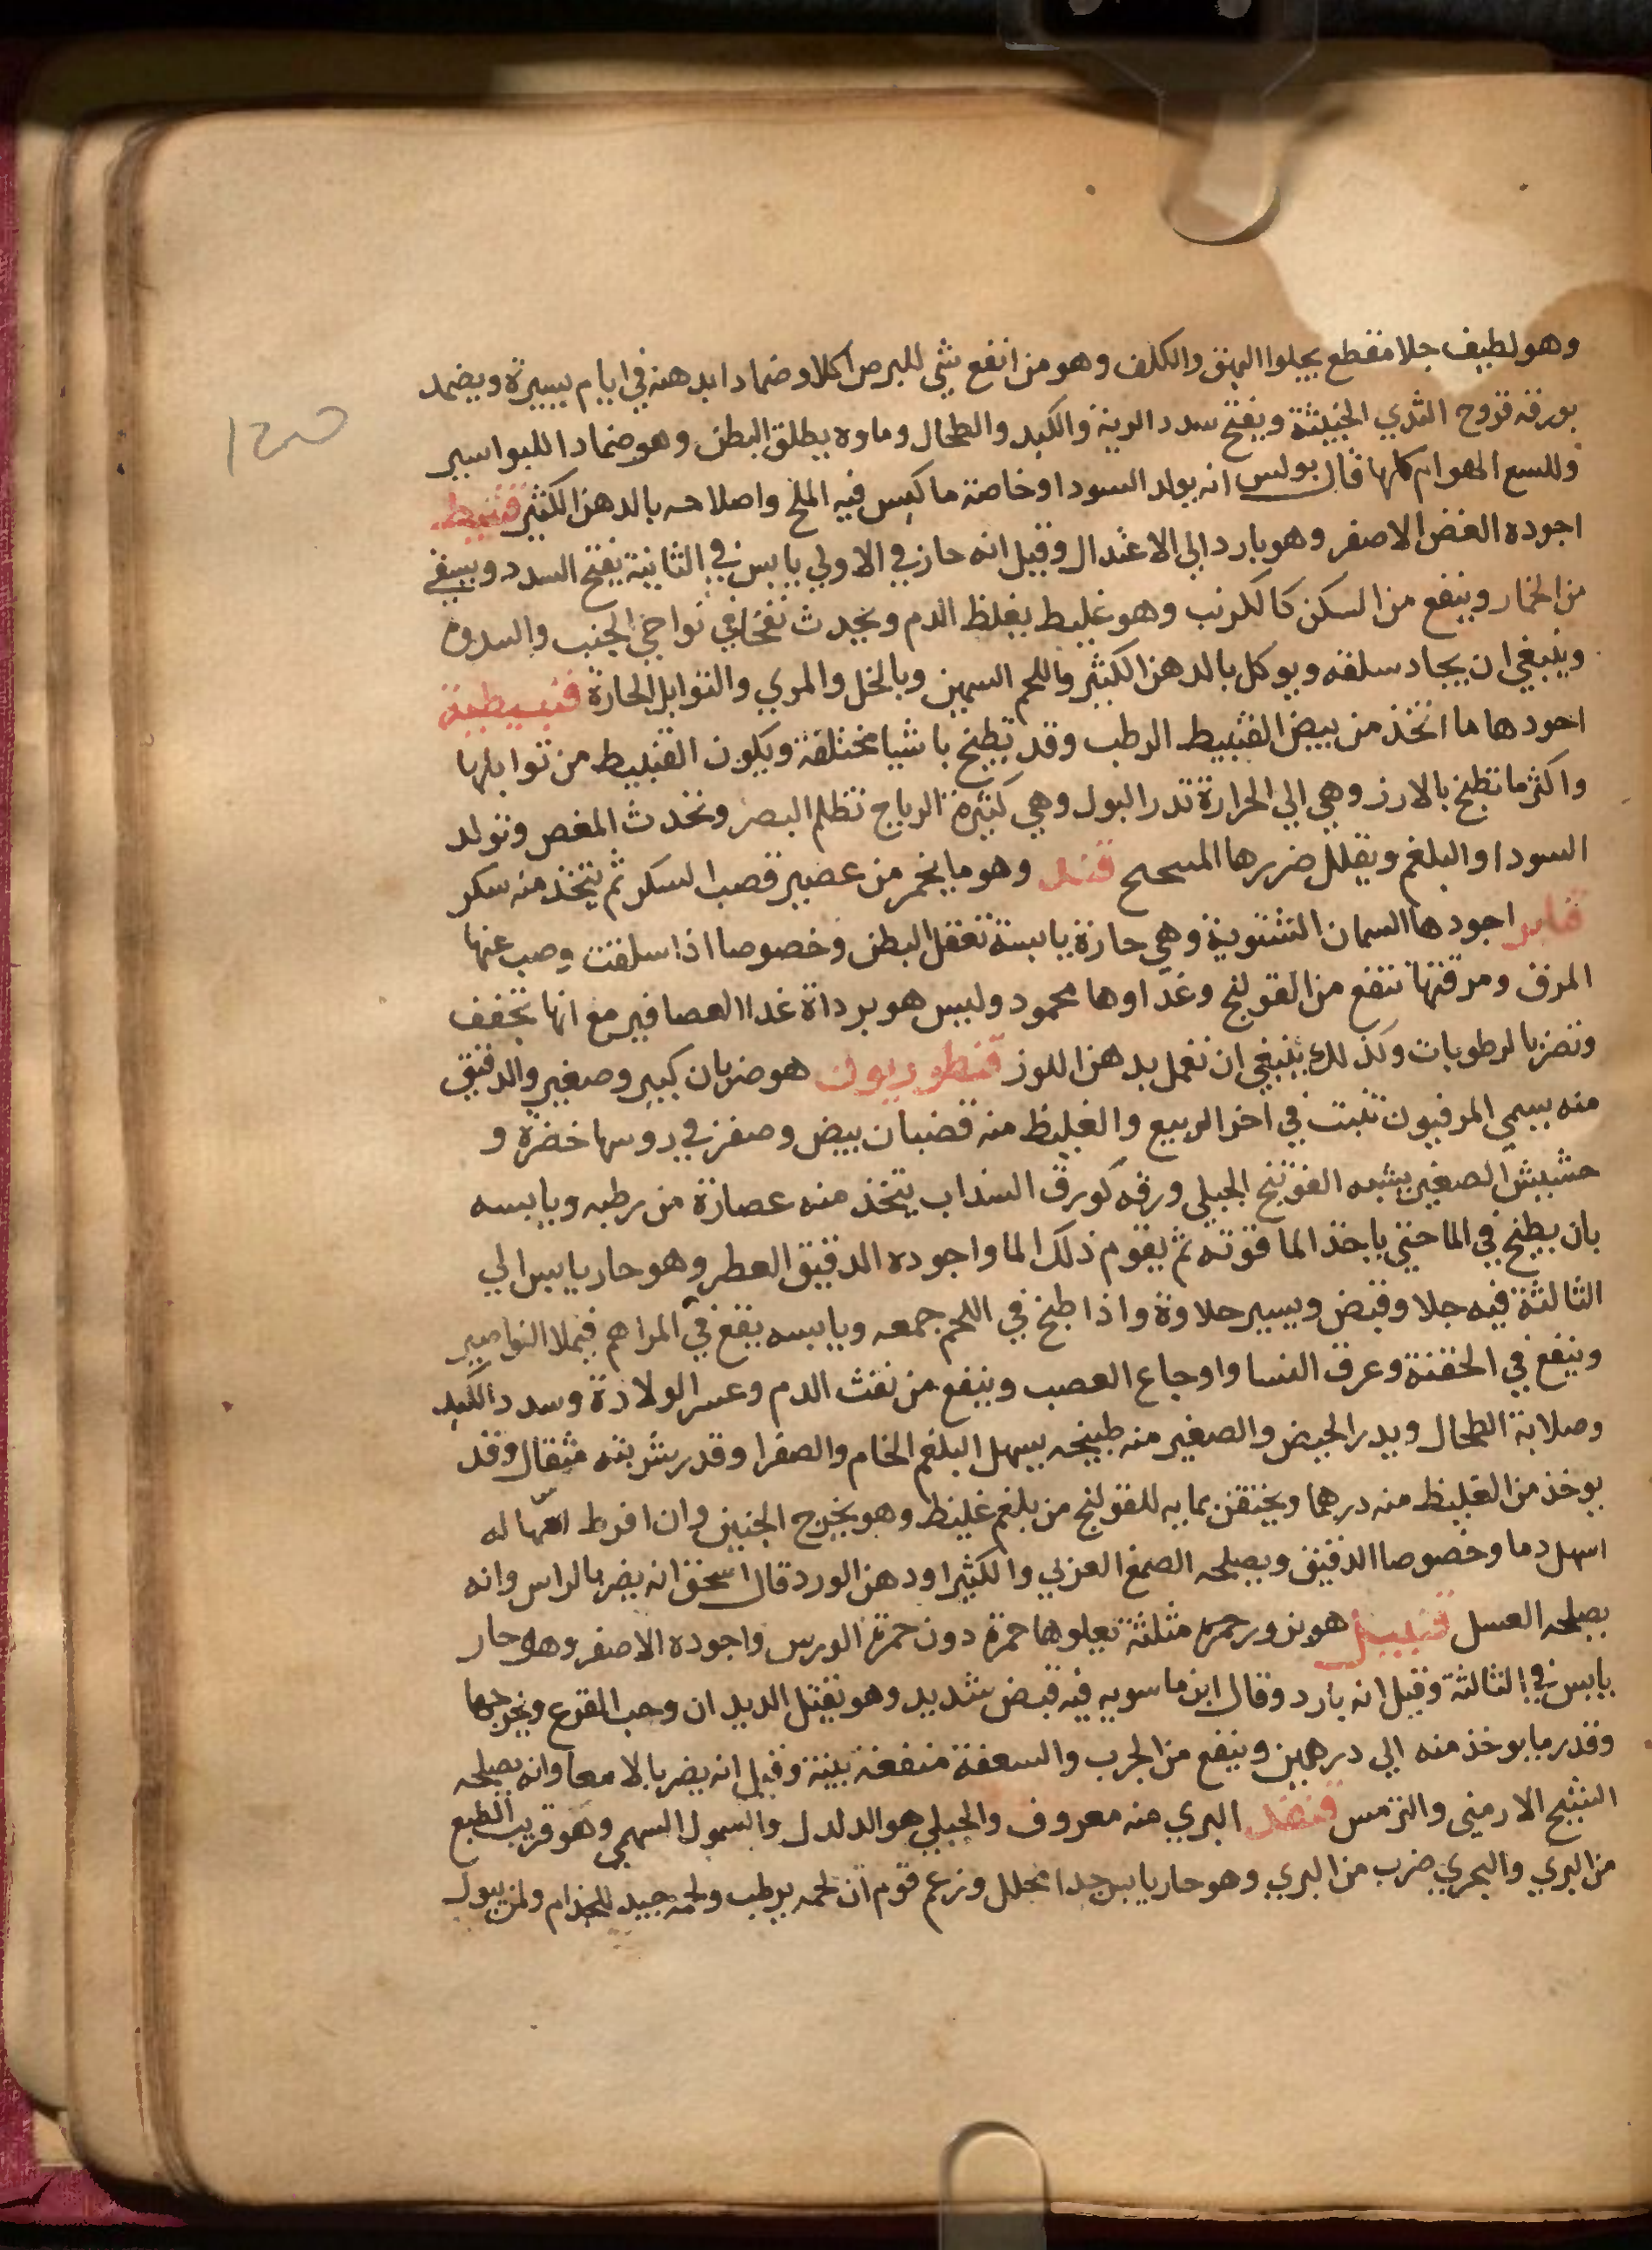 وهو لطيف جلا مقطع يجلوا البهق والكلف وهو من انفع شي للبرص اكلا وضمادا بدهنه في ايام يسيرة ويضمد
بورقه قروح الثدي الخبيثة ويفتح سدد الرية والكبد والطحال وماوه يطلق البطن وهو ضمادا للبواسير
وللسع الهوام كلها قال بولس انه يولد السودا وخاصة ما كبس فيه الملح واصلاحه بالدهن الكثير قنبيط
اجوده الغض الاصفر وهو بارد الي الاعتدال وقيل انه حار في الاولي يابس في الثانية يفتح السدد ويسقي
من الخمار وينفع من السكر كالكرنب وهو غليظ يغلظ الدم ويحدث نفخا في نواحي الجنب والسدوه
وينبغي ان يجاد سلقه ويوكل بالدهن الكثير واللحم السمين وبالخل والمري والتوابل الحارة قنبيطية
اجودها ما اتخذ من بيض القنبيط الرطب وقد تطبخ باشيا مختلفة ويكون القنبيط من توابلها
واكثر ما تطبخ بالارز وهي الي الحرارة تدر البول وهي كثيرة الرياح تظلم البصر وتحدث المغص وتولد
السودا والبلغم ويقلل ضررها المسحح قند وهو ما يخمر من عصير قصب السكر ثم يتخذ منه سكر
قنابر اجودها السمان الشتوية وهي حارة يابسة تعقل البطن وخصوصا اذا سلقت وصب عنها
المرق ومرقتها تنفع من القولنج وغذاوها محمود وليس هو برداة غذا العصافير مع انها تخفف
وتضر بالرطوبات ولذلك ينبغي ان تعمل بدهن اللوز قنطوريون هو ضربان كبير وصغير والدقيق
منه يسمي المرفيون تنبت في اخر الربيع والغليظ منه قضبان بيض وصفر في روسها خضرة و
حشيش الصغير يشبه الفوتنج الجبلي ورقه كورق السذاب يتخذ منه عصارة من رطبه ويابسه
بان يطبخ في الما حتي ياخذ الما قوته ثم يقوم ذلك الما واجوده الدقيق العطر وهو حار يابس الي
الثالثة فيه جلا وقبض ويسير حلاوة واذا طبخ في اللحم جمعه ويابسه يقع في المراهم فيملا النواصير
وينفع في الحقنة وعرق النسا واوجاع العصب وينفع من نفث الدم وعسر الولادة وسدد الكبد
وصلابة الطحال ويدر الحيض والصغير منه طبيخه يسهل البلغم الخام والصفرا وقدر شربته مثقال وقد
يوخذ من الغليظ منه درهما ويحتقن بمايه للقولنج من بلغم غليظ وهو يخرج الجنين وان افرط اسهاله
اسهل دما وخصوصا الدقيق ويصلحه الصمغ العربي والكثيرا ودهن الورد قال اسحق انه يضر بالراس وانه
يصلحه العسل قنبيل هو بزور حمره مثلثة تعلوها حمرة دون حمرة الورس واجوده الاصفر وهو حار
يابس في الثالثة وقيل انه بارد وقال ابن ماسويه فيه قبض شديد وهو يقتل الديدان وحب القرع ويخرجها
وقدر ما يوخذ منه الي درهمين وينفع من الجرب والسعفة منفعة بينة وقيل انه يضر بالامعا وانه يصلحه
الشيح الارمني والترمس قنفذ البري منه معروف والجبلي هو الدلدل والسمول السهمي وهو قريب الطبع
من البري والبحري ضرب من البري وهو حار يابس جدا محلل وزعم قوم ان لحمه يرطب ولحمه جيد للجذام ولمن يبول